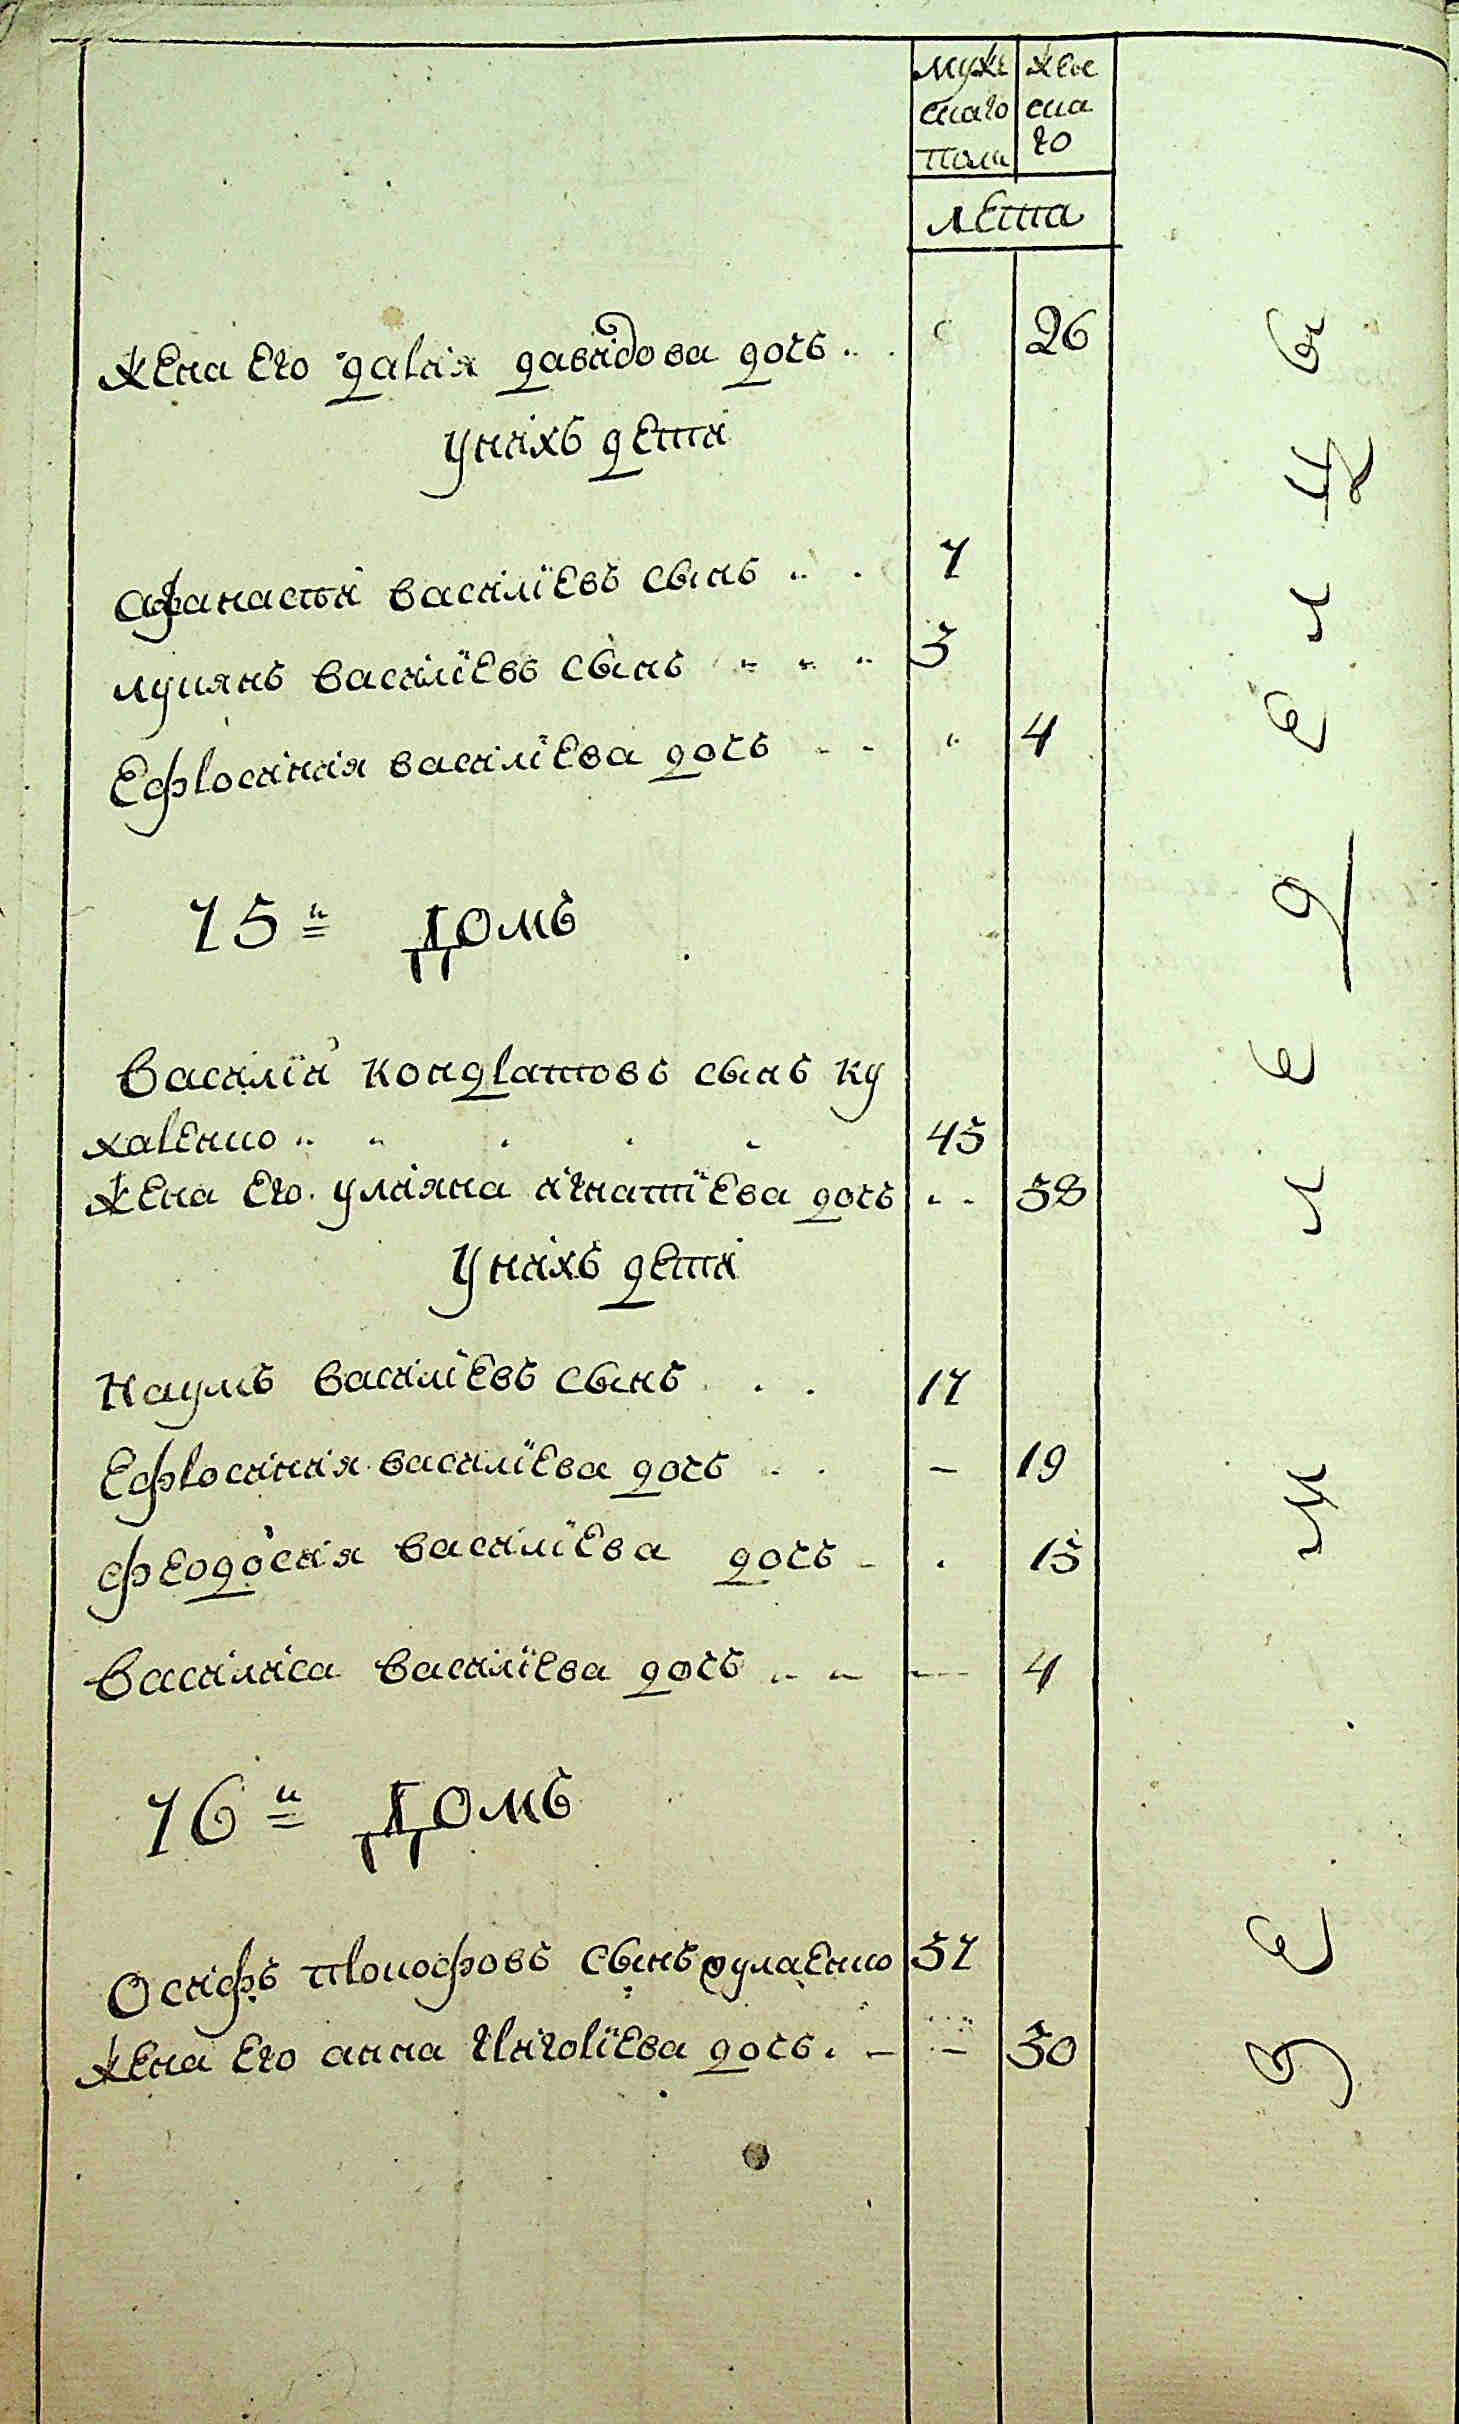 мужескаго пола
женскаго
лета
жена его дария давидова дочь 26
у них дети
афанасий василиевъ сынъ 7
лукянъ василиевъ сынъ 3
Ефросиния василиева дочь 4
75й Домъ
Василий кондратовъ сынъ ку
харенко 45
жена его улияна игнатиева дочь 38
у нихъ дети
наумъ василиевъ сынъ 17
Ефросиния василиева дочь 19
феодосия василиева дочь 15
василиса василиева дочь 4
76й Домъ
Осифъ прокофовъ сынъ 37
жена его анна григориева дочь 30